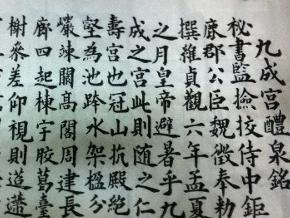 九成宮醴泉銘
秘書監撿挍侍中鉅
鹿郡公臣魏徵奉勑
撰維貞觀六年孟夏
之月皇帝避暑乎九
成之宮此則随之仁
壽宮也冠山抗殿絶
壑為池跨水架楹分
巖竦闕高閣周建長
廊四起棟宇膠葛臺
榭參差仰視則迢遰